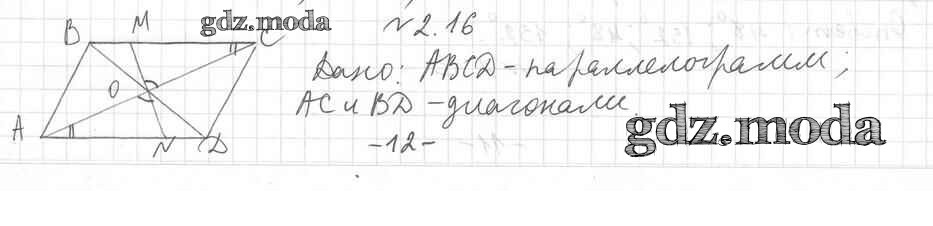 B M C gdz.moda
№ 2.16
Дано: ABCD - параллелограмм;
O
AC и BD - диагонали.
gdz.moda
A N D
-12-